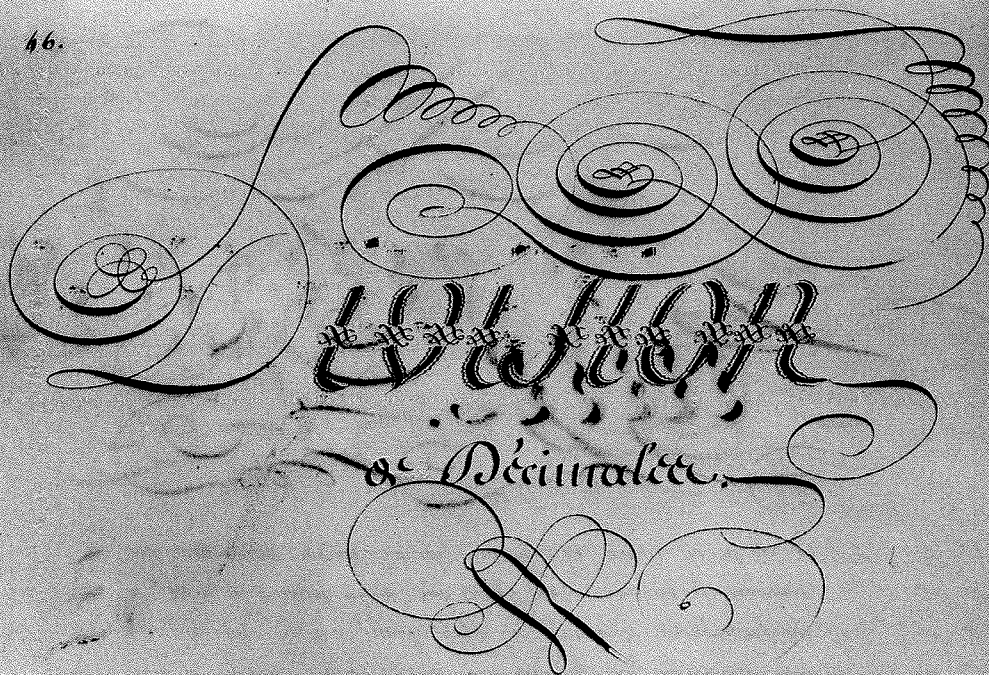 46.
Division
de Décimales.